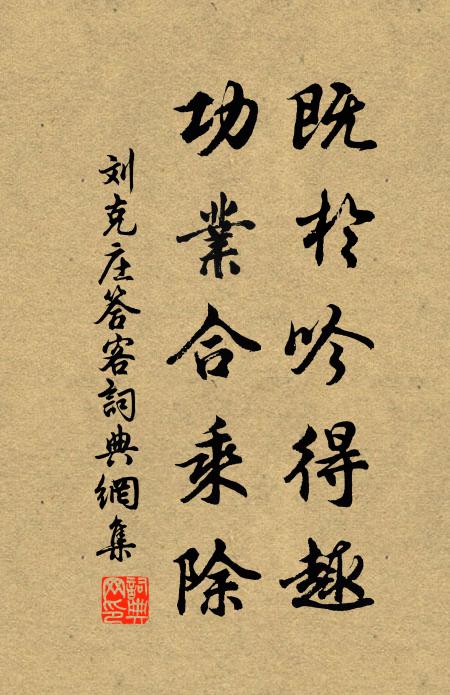 既於吟得趣
功業合乘除
刘克庄答客詞典網集
詞典網印